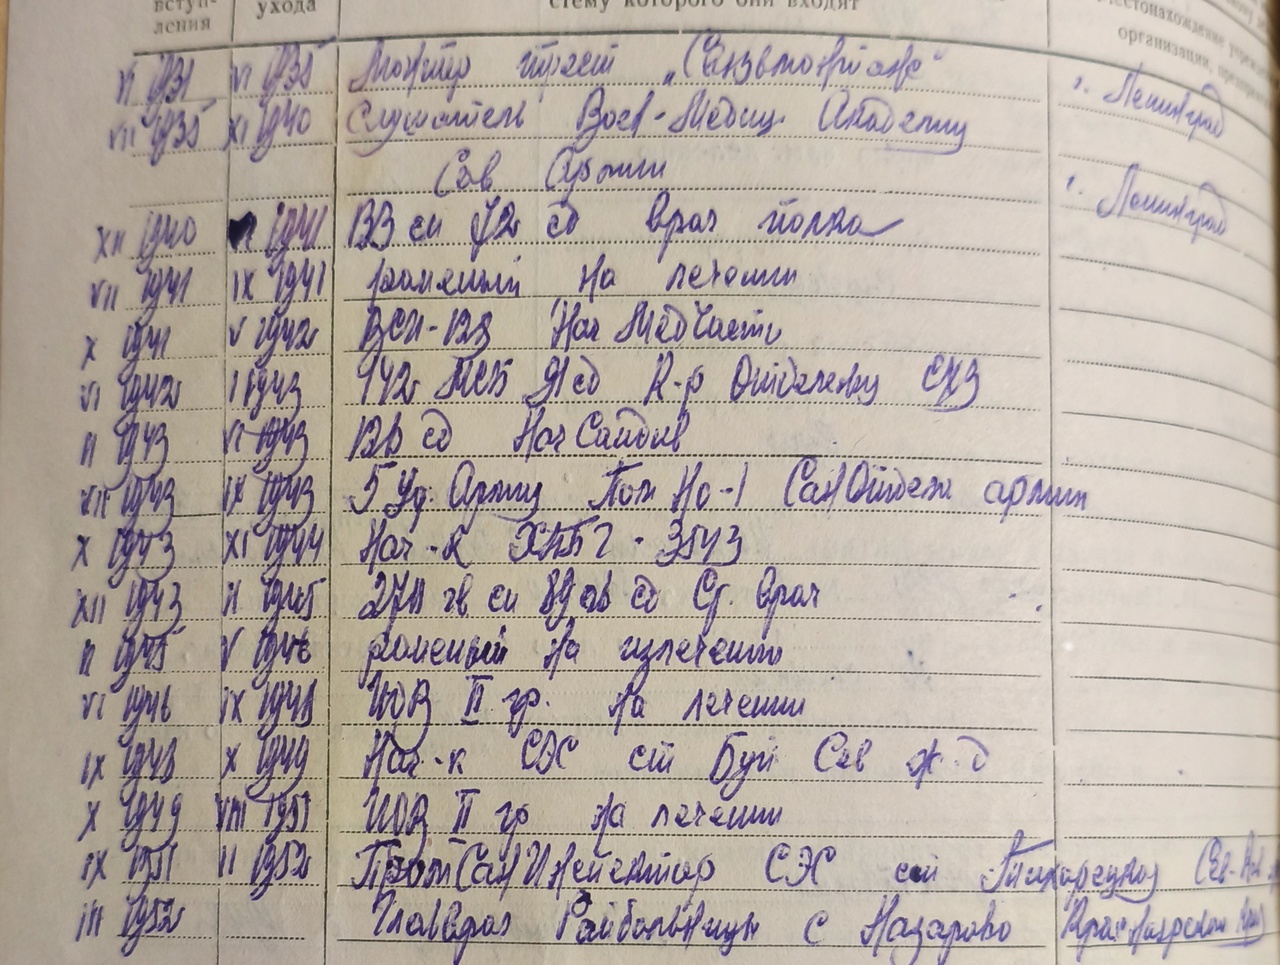 вступления ухода стему которого они входят местонахождение
организации,
VI 1931 VI 1935 Монтёр трест „Сантехмонтаж“
VII 1935 XI 1940 Слушатель Воен-Медиц. Академии г. Ленинград
Сов Армии
XII 1940 1941 133 сп 72 сд врач полка г. Ленинград
VII 1941 IX 1941 раненый на лечении
X 1941 V 1942 ВСП-128 Нач Мед Части
VI 1942 I 1943 442 МСБ 91 сд К-р Отделения
II 1943 VI 1943 126 сд Нач Сандив
VII 1943 IX 1943 5 Уд. Армии Пом Но-1 СанОтдела армии
X 1943 XI 1944 Нач-к ХППГ-3543
XII 1943 II 1945 270 гв сп 89 гв сд Ст. врач
II 1945 V 1946 раненый на излечении
VI 1946 IX 1948 ИОВ II гр. на лечении
IX 1948 X 1949 Нач-к СЭС ст Буй Сев ж.д
X 1949 VIII 1951 ИОВ II гр на лечении
IX 1951 II 1952 ПромСанИнспектор СЭС ст Тихорецкая Сев-Кав
III 1952 Главврач Райбольницы с Назарово Красноярский край